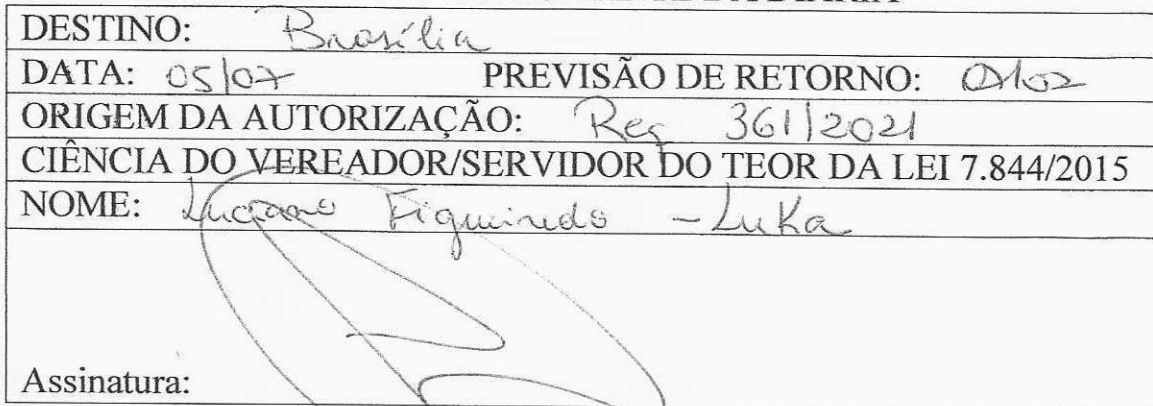 DESTINO: Brasília
DATA: 05/07 PREVISÃO DE RETORNO:
ORIGEM DA AUTORIZAÇÃO: Req 361/2021
CIÊNCIA DO VEREADOR/SERVIDOR DO TEOR DA LEI 7.844/2015
NOME: Luciano Figueiredo - Luka
Assinatura: